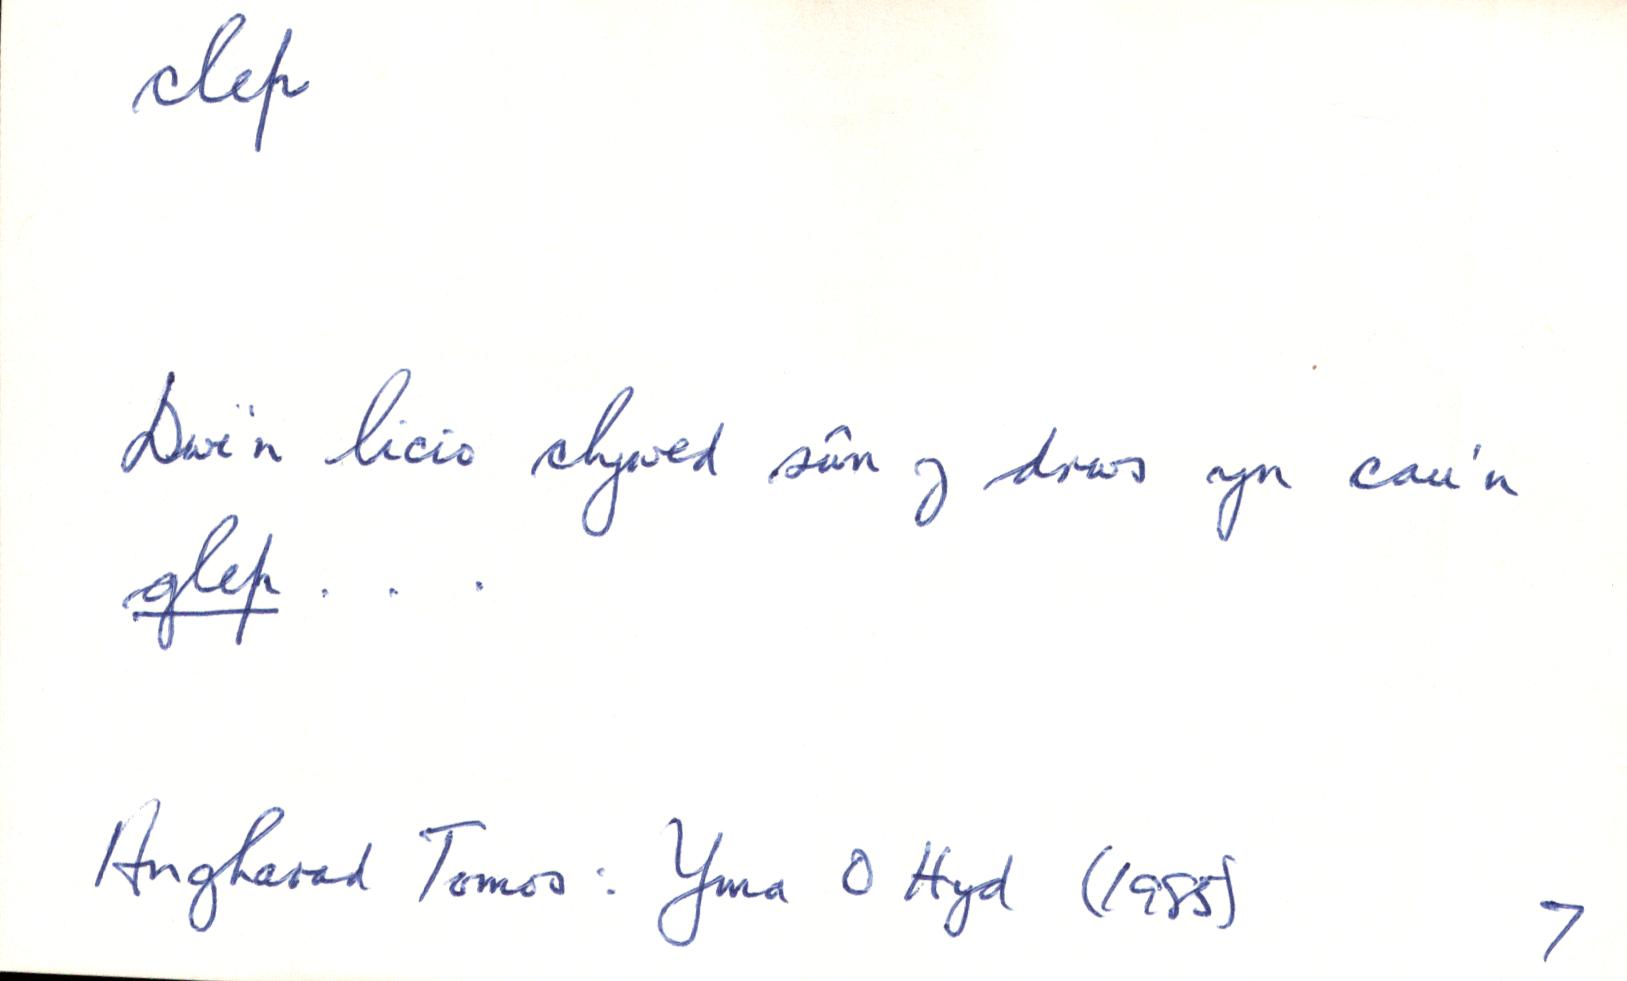 clep
Dwi'n licio clywed sŵn y drws yn cau'n
glep . . .
Angharad Tomos: Yma O Hyd (1985)
7